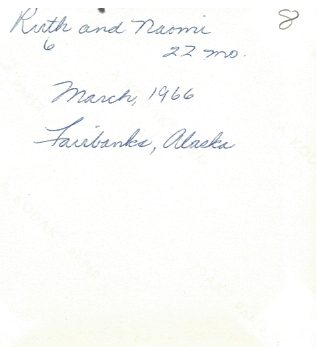 Ruth and Naomi 8
6 22 mo.
March, 1966
Fairbanks, Alaska